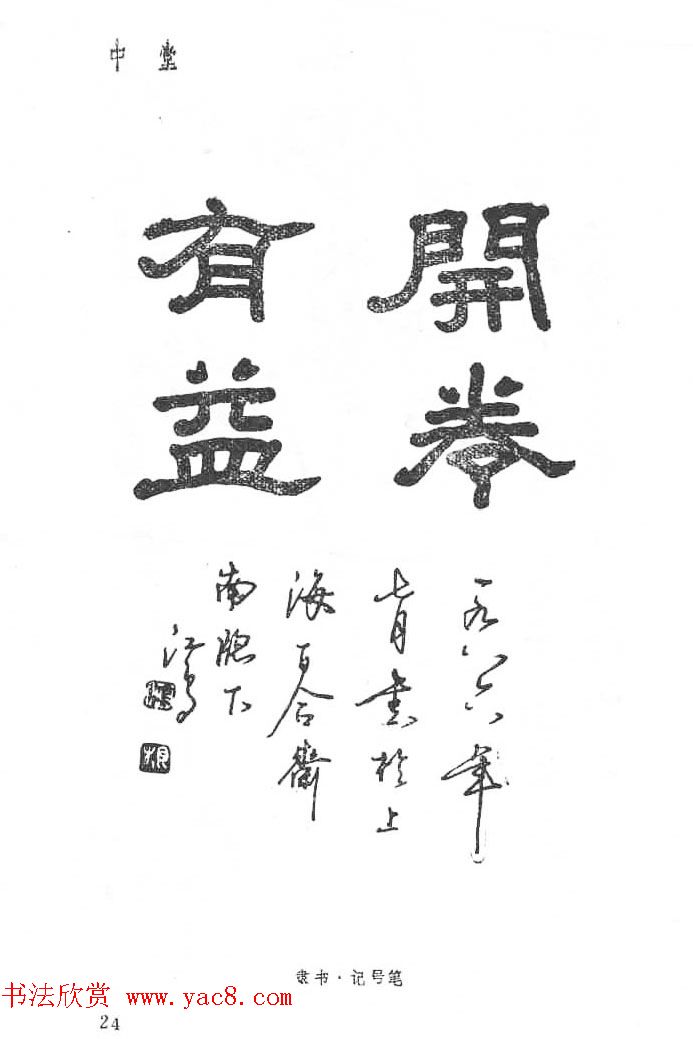 中堂
開卷
有益
一九八六年
七月書於上
海百合齋
南牕下
江
隶书·记号笔
书法欣赏 www.yac8.com
24